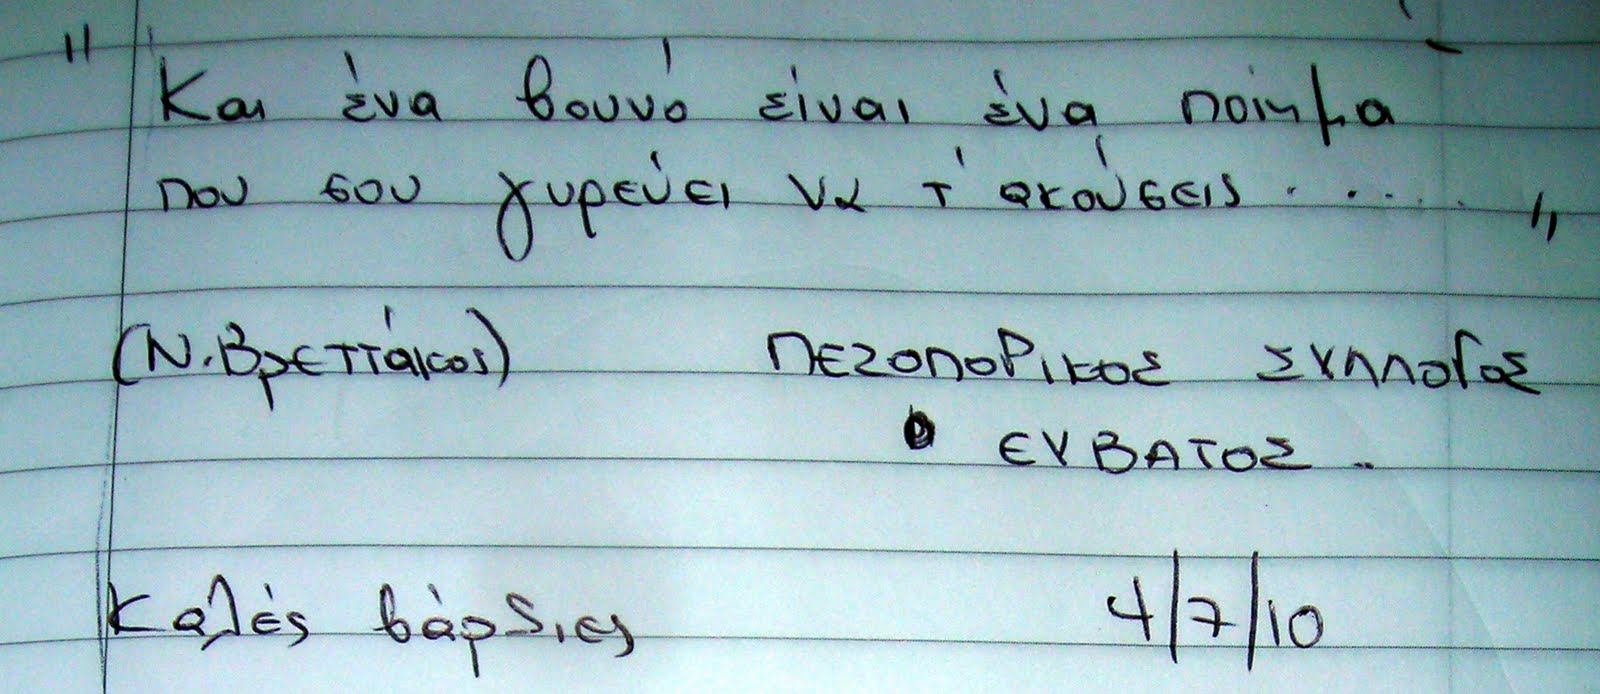 "Και ένα βουνό είναι ένα ποίημα
που σου γυρεύει να τ' ακούσεις ....."
(Ν. Βρεττάκος) ΠΕΖΟΠΟΡΙΚΟΣ ΣΥΛΛΟΓΟΣ
ΕΥΒΑΤΟΣ..
Καλές βάρδιες 4/7/10